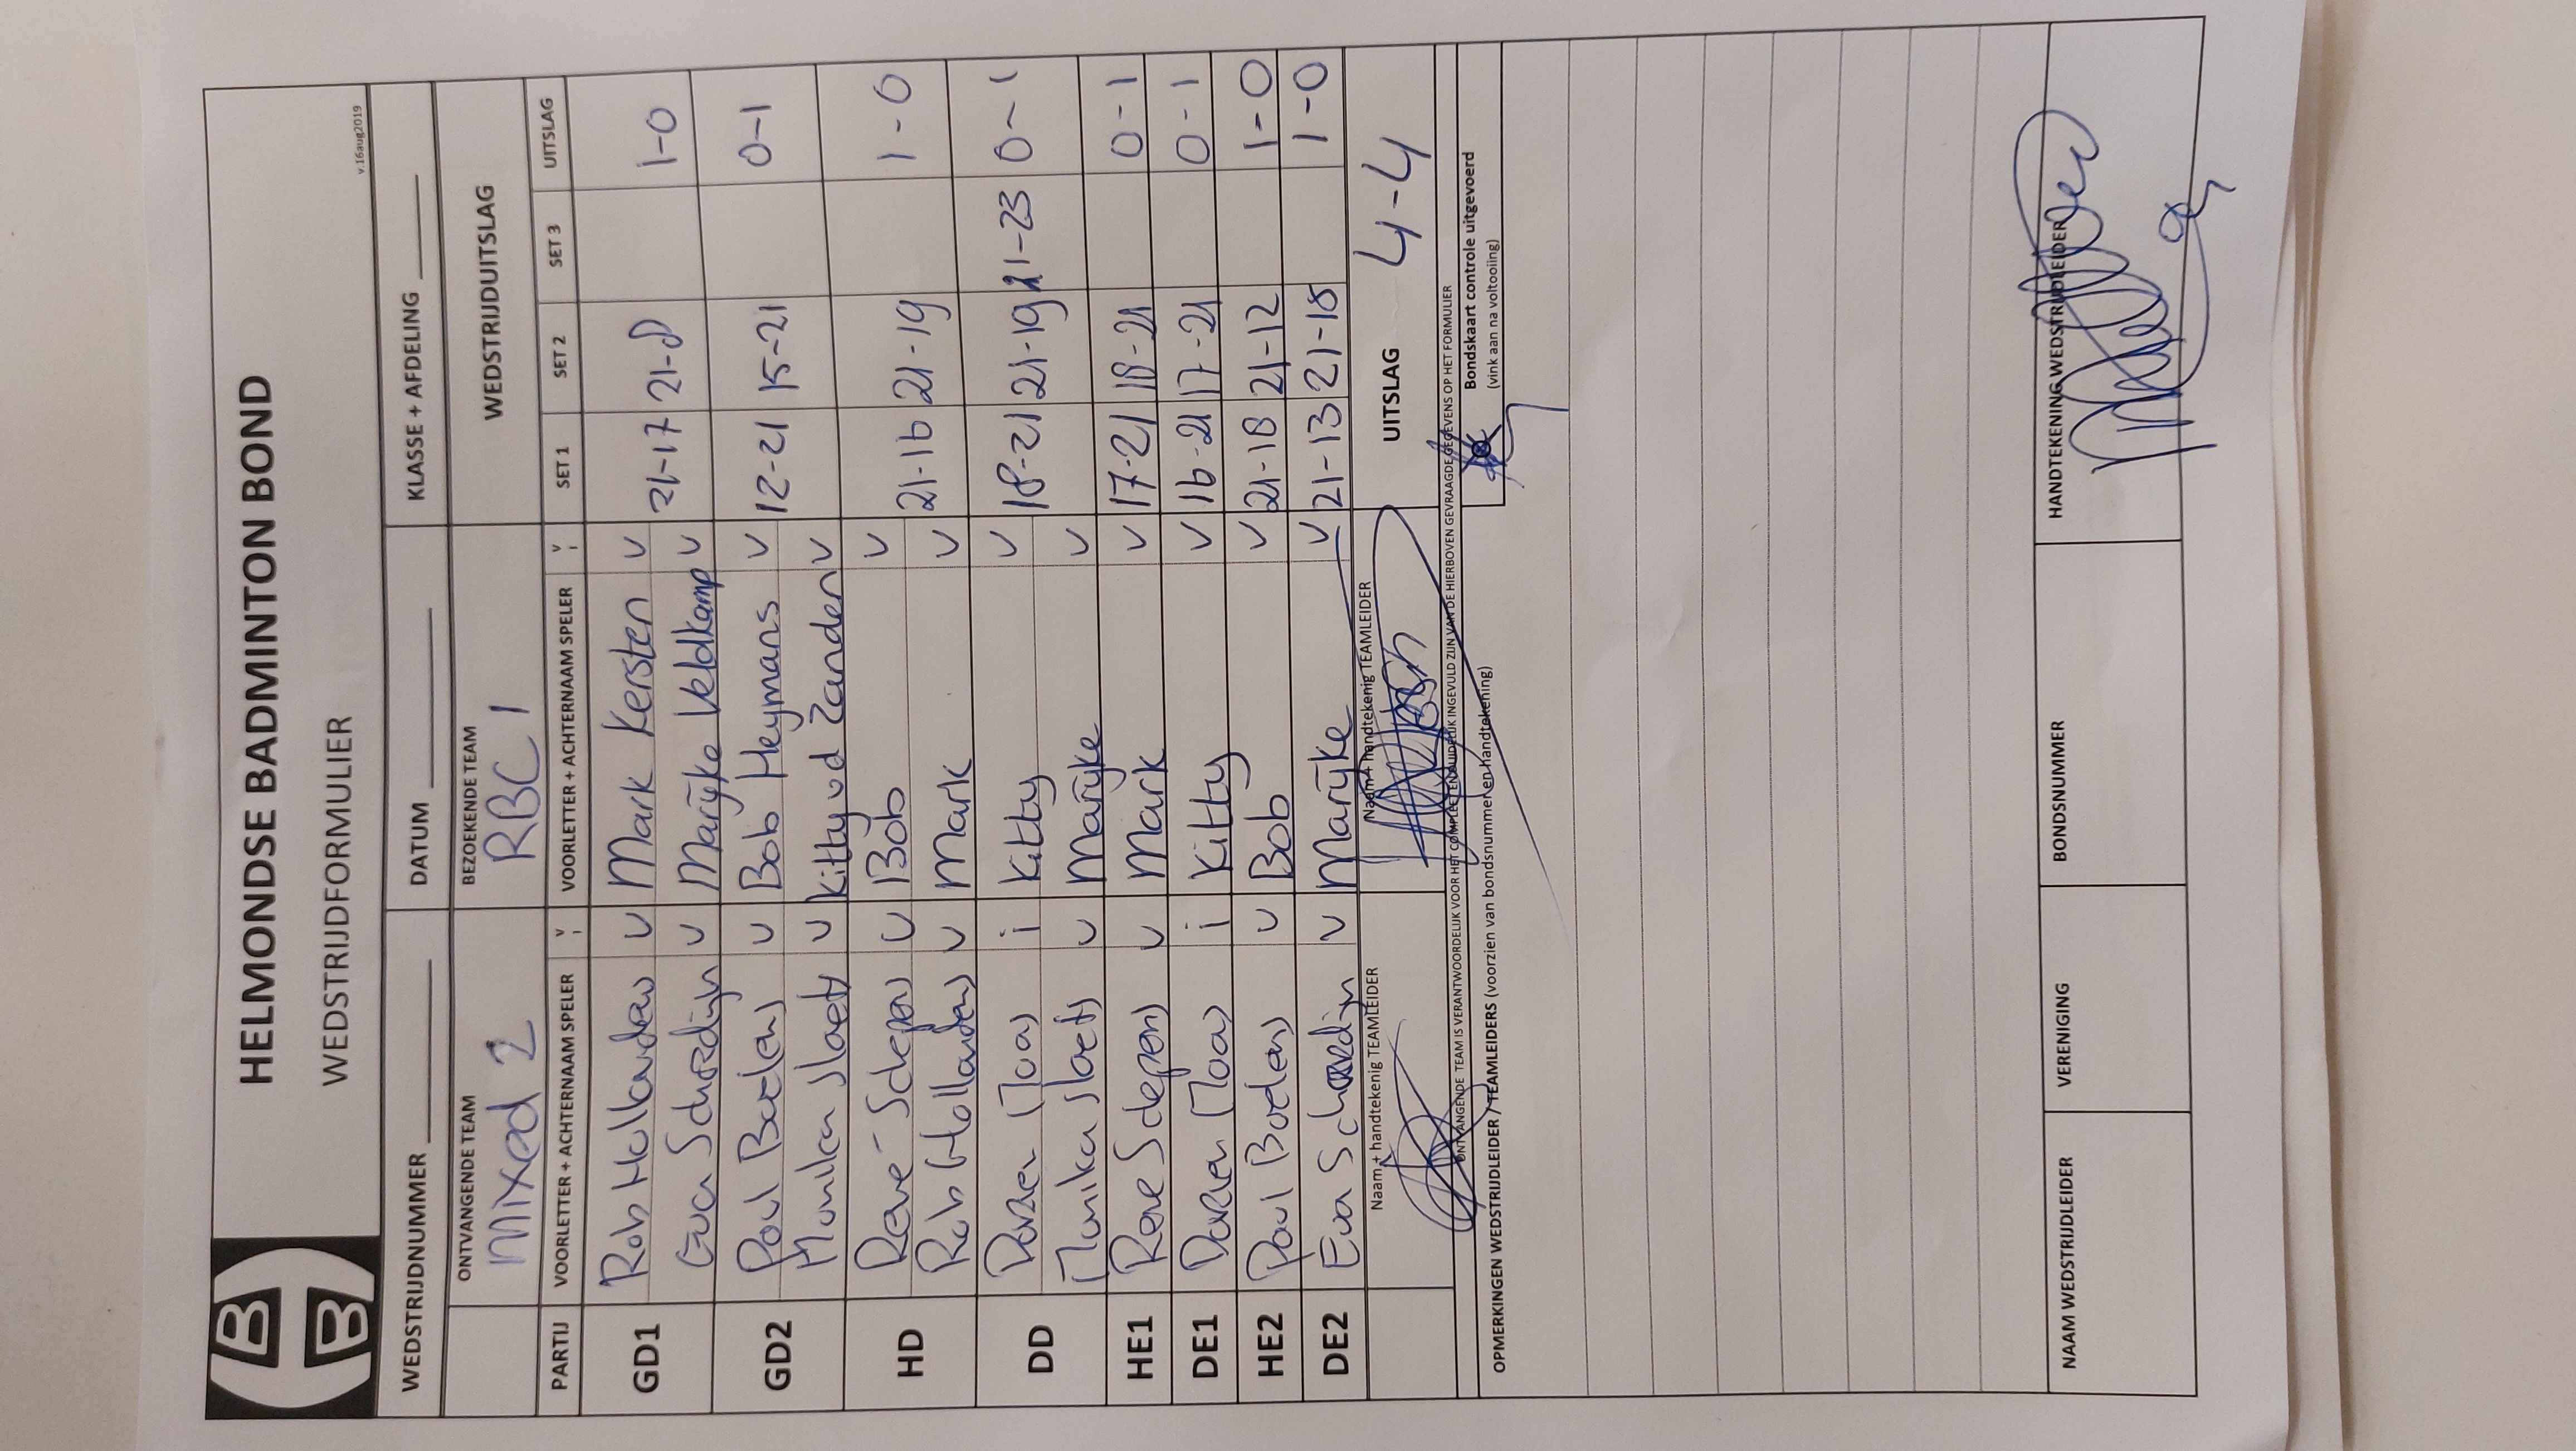 HELMONDSE BADMINTON BOND
WEDSTRIJDFORMULIER
v.16aug2019
WEDSTRIJDNUMMER
DATUM
KLASSE + AFDELING
ONTVANGENDE TEAM
Mixed 2
BEZOEKENDE TEAM
RBC 1
WEDSTRIJDUITSLAG
PARTIJ VOORLETTER + ACHTERNAAM SPELER v i VOORLETTER + ACHTERNAAM SPELER v i SET 1 SET 2 SET 3 UITSLAG
GD1
Rob Hollanders v Mark Kersten v
21-17 21-8 1-0
Eva Schrordijn v Marijke Veldkamp v
GD2
Paul Boelens v Bob Heymans v
12-21 15-21 0-1
Monika Sloets v Kitty vd Zanden v
HD
René Schepens v Bob v
21-16 21-19 1-0
Rob Hollanders v Mark v
DD
i Kitty v
18-21 21-19 21-23 0-1
Monika Sloets v Marijke v
HE1 Rene Scepens v Mark v 17-21 18-21 0-1
DE1 i Kitty v 16-21 17-21 0-1
HE2 Paul Boelens v Bob v 21-18 21-12 1-0
DE2 Eva v Marijke v 21-13 21-18 1-0
Naam + handtekenig TEAMLEIDER
Naam + handtekenig TEAMLEIDER
UITSLAG 4-4
ONTVANGENDE TEAM IS VERANTWOORDELIJK VOOR HET COMPLEET EN DUIDELIJK INGEVULD ZIJN VAN DE HIERBOVEN GEVRAAGDE GEGEVENS OP HET FORMULIER
OPMERKINGEN WEDSTRIJDLEIDER / TEAMLEIDERS (voorzien van bondsnummer en handtekening)
Bondskaart controle uitgevoerd
(vink aan na voltooiing)
NAAM WEDSTRIJDLEIDER
VERENIGING
BONDSNUMMER
HANDTEKENING WEDSTRIJDLEIDER